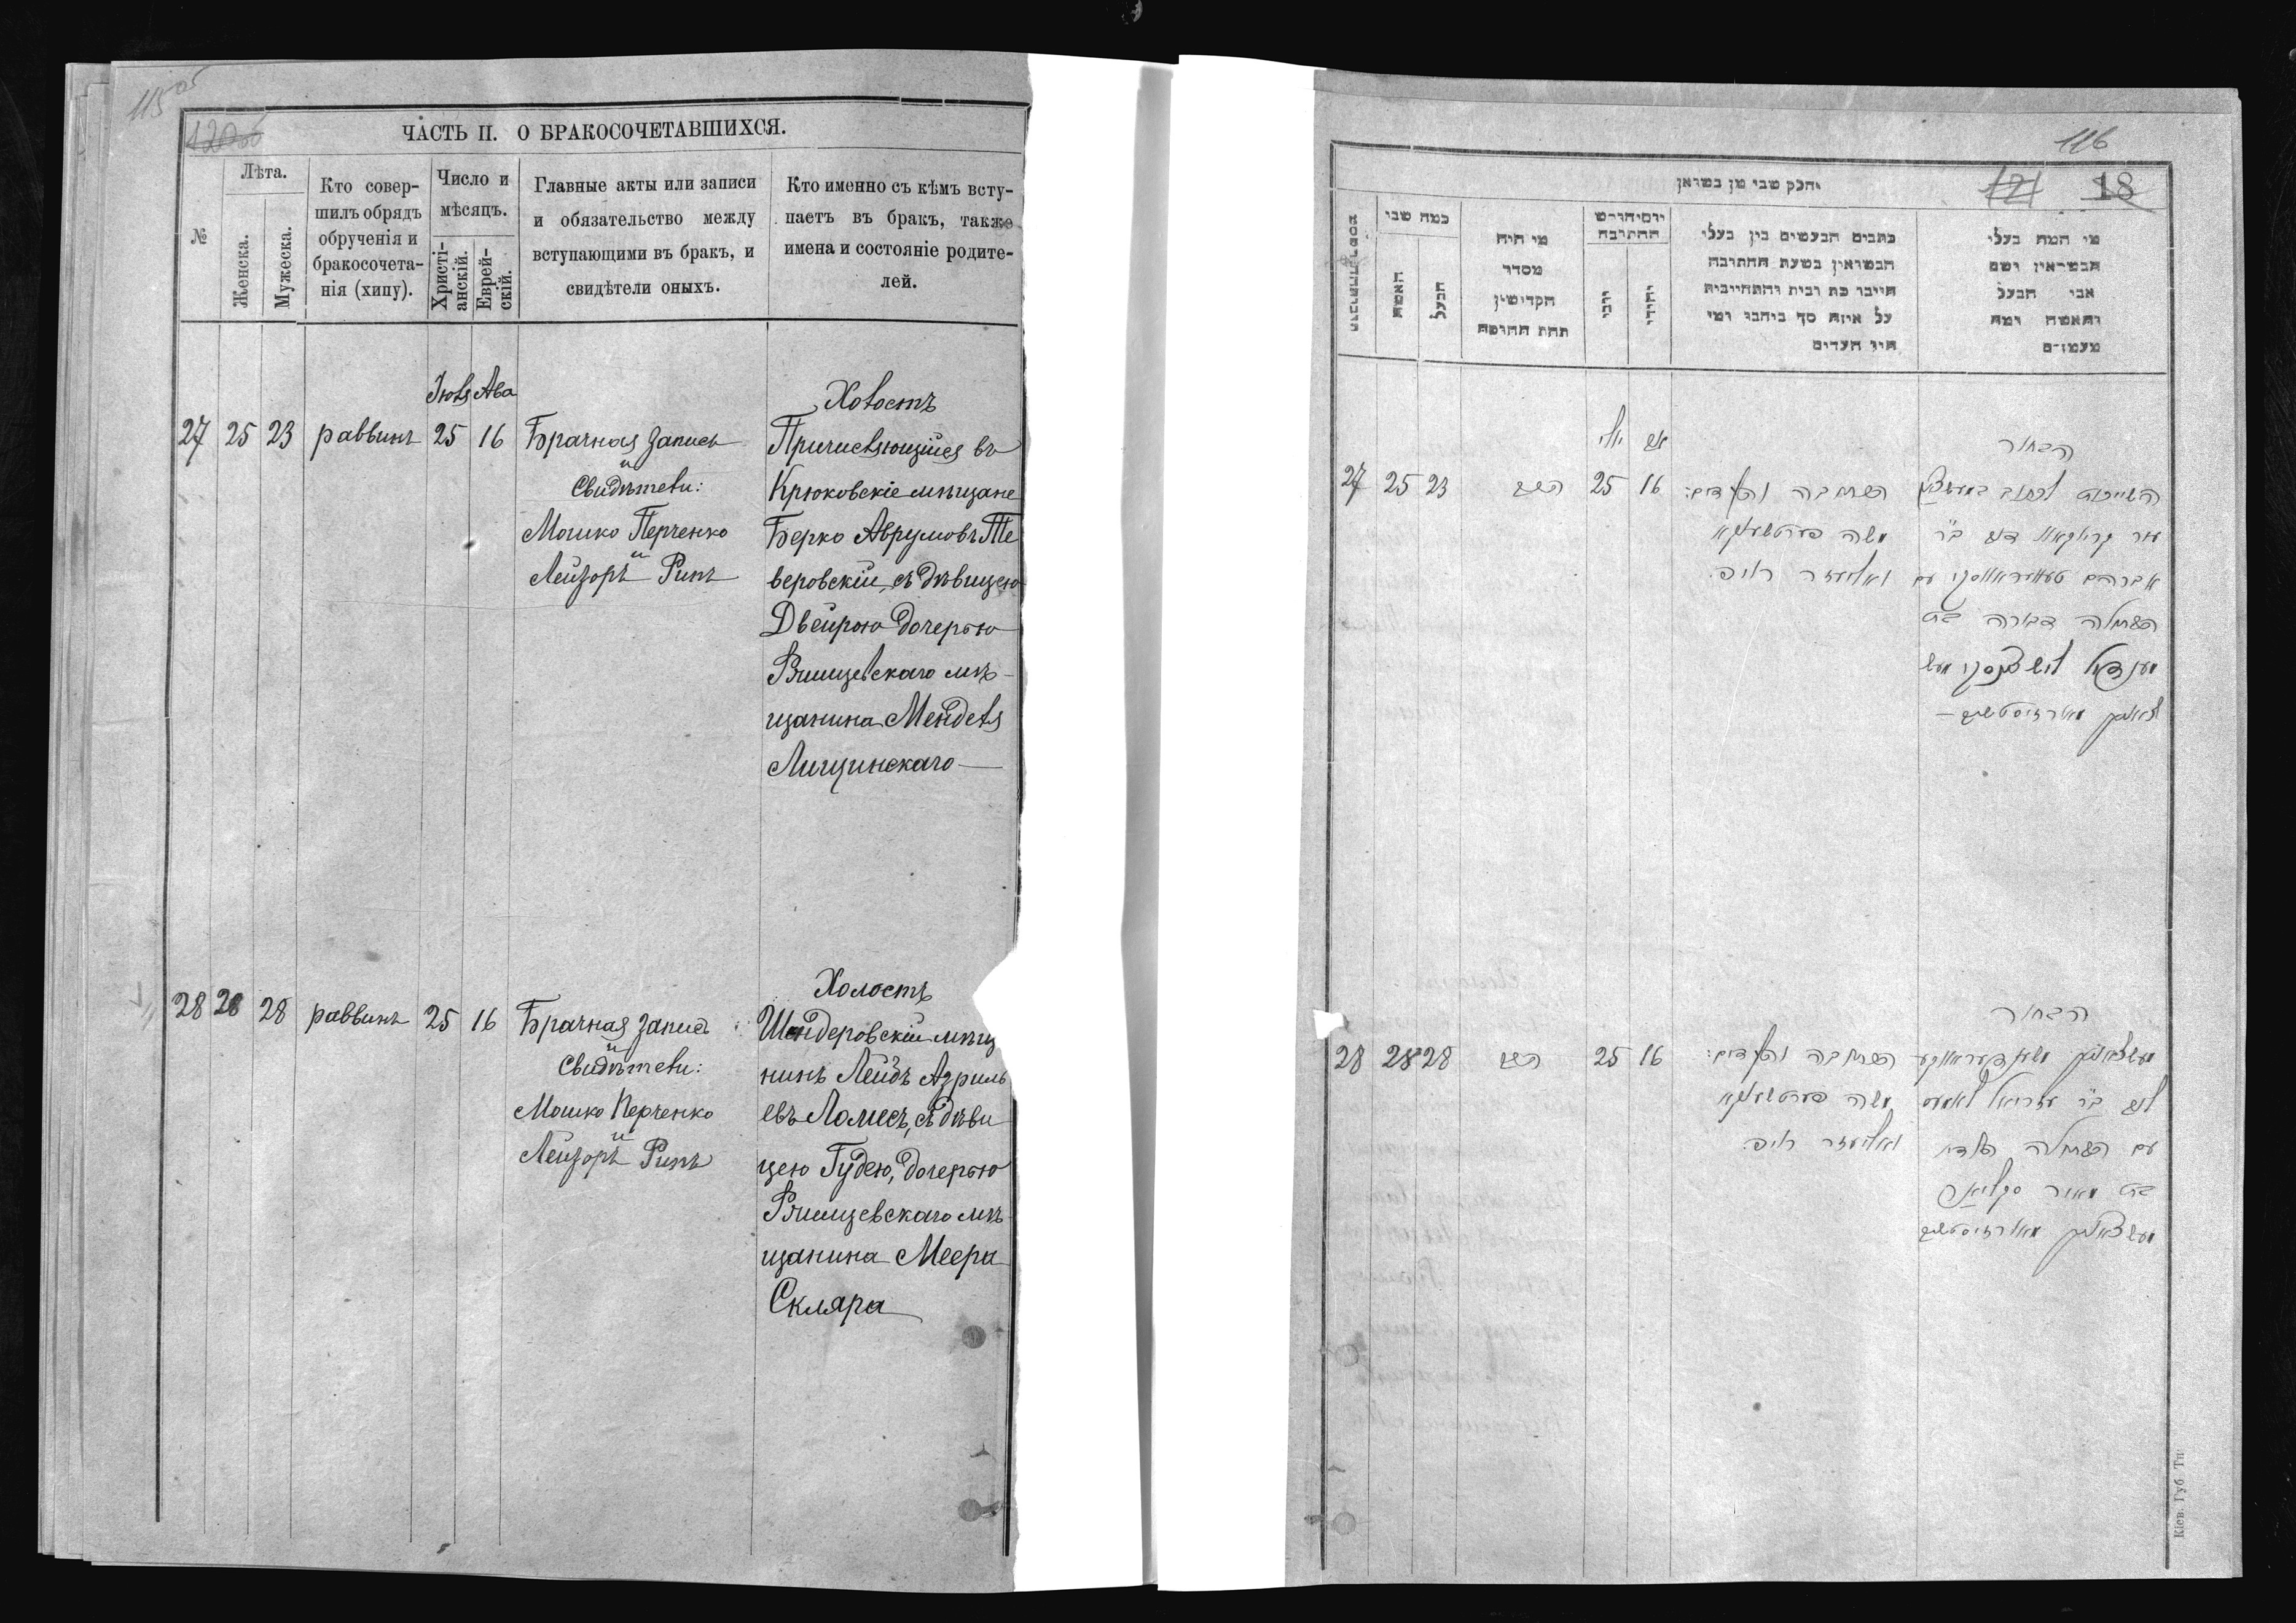 115 об
ЧАСТЬ II. О БРАКОСОЧЕТАВШИХСЯ.
№
Лѣта.
Женска.
Мужеска.
Кто совер-
шилъ обрядъ
обрученія и
бракосочета-
нія (хипу).
Число и
мѣсяцъ.
Христі-
анскій.
Еврей-
скій.
Главные акты или записи
и обязательство между
вступающими въ бракъ, и
свидѣтели оныхъ.
Кто именно съ кѣмъ всту-
паетъ въ бракъ, также
имена и состояніе родите-
лей.
Іюля Ава
27 25 23 раввинъ 25 16
Брачная запись
и
Свидѣтели:
Мошко Перченко
и
Лейзоръ Рипъ
Холостъ
Причисляющійся въ
Крюковскіе мѣщане
Берко Аврумовъ Тве
веровскій, съ дѣвицею
Двейрою дочерью
Ржищевскаго мѣ-
щанина Менделя
Лищинскаго
28 28 28 раввинъ 25 16
Брачная запись
и
Свидѣтели:
Мошко Перченко
и
Лейзоръ Рипъ
Холостъ
Шендеровскій мѣщ
нинъ Лейбъ Азриль
евъ Ломесъ, съ дѣви
цею Гудею, дочерью
Ржищевскаго мѣ-
щанина Меера
Скляра
116
121 18
וחלק שני מן נשואין
כמה שני
האשה
הבעל
מי היה
מסדר
הקדושין
תחת החופה
יום וחודש
החתונה
יוני
יהודי
כתבים הנעשים בין בעלי
הנשואין בשעת החתונה
היינו כתובות והתחייבות
על איזה סך ביניהם ומי
היו העדים
מי המה בעלי
הנשואין ושם
אבי הבעל
והאשה ומה
מעמדם
יולי אב
27 25 23 הרב 25 16
הכתובה והעדים:
משה פערטשענקא
ואליעזר ריפ
הבחור
אברהם
הבתולה דבורה בת
28 28 28 הרב 25 16
הכתובה והעדים:
משה פערטשענקא
ואליעזר ריפ
הבחור
ליב ב״ר עזריאל לאמעס
עם הבתולה הודי
בת מאיר סקליאר
Кіев. Губ Тп